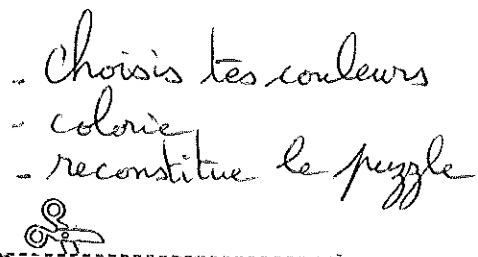 - choisis tes couleurs
- colorie
- reconstitue le puzzle